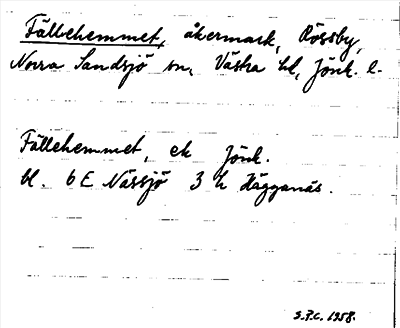 Fällehemmet, åkermark, Rössby,
Norra Sandsjö sn, Västra hd, Jönk. l.
Fällehemmet, ek Jönk.
bl. 6 E Nässjö 3 h Hägganäs.
S.F.C. 1958.